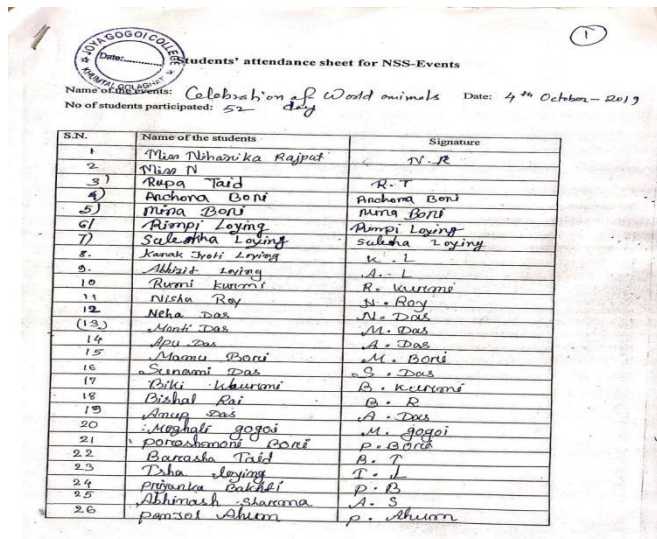 1
JOYA GOGOI COLLEGE
Date:
KHUMTAI, GOLAGHAT
Students' attendance sheet for NSS-Events
Name of the events: Celebration of World animals day Date: 4th October - 2019
No of students participated: 52
S.N. Name of the students Signature
1 Miss Niharika Rajput N.R
2 Miss N
3) Rupa Taid R.T
4) Anchona Bori Anchona Bori
5) Mina Bori Mina Bori
6/ Rimpi Loying Rimpi Loying
7) Sulekha Loying Sulekha Loying
8. Kanak Jyoti Loying K.L
9. Abhijit Loying A.L
10 Rumi Kurmi R. Kurmi
11 Nisha Roy N. Roy
12 Neha Das N. Das
(13) Monti Das M. Das
14 Apu Das A. Das
15 Mamu Bori M. Bori
16 Sunami Das S. Das
17 Biki Kurmi B. Kurmi
18 Bishal Rai B.R
19 Anup Das A. Das
20 Moghali gogoi M. gogoi
21 poroshmoni Bori P. Bori
22 Barasha Taid B.T
23 Isha loying I.L
24 Priyanka Bakhli P.B
25 Abhinash Sharma A.S
26 Ahum P. Ahum